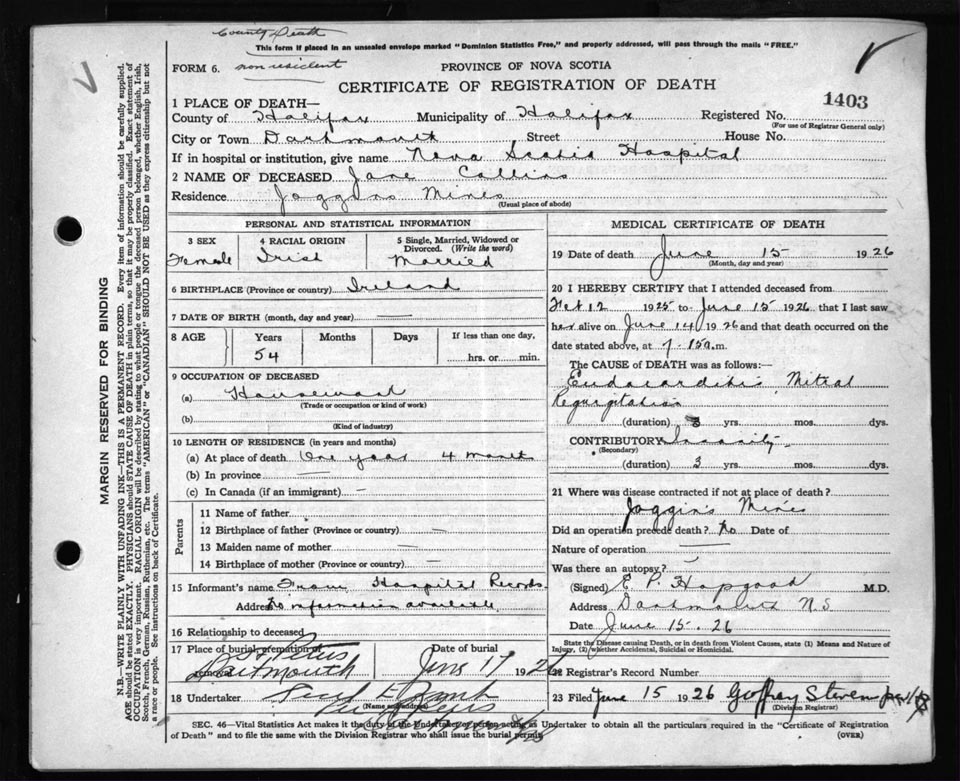 County Death
This form if placed in an unsealed envelope marked "Dominion Statistics Free," and properly addressed, will pass through the mails "FREE."
FORM 6. non resident
PROVINCE OF NOVA SCOTIA
CERTIFICATE OF REGISTRATION OF DEATH
1403
1 PLACE OF DEATH—
County of Halifax Municipality of Halifax Registered No.
(For use of Registrar General only)
City or Town Dartmouth Street House No.
If in hospital or institution, give name Nova Scotia Hospital
2 NAME OF DECEASED Jane Collins
Residence Joggins Mines
(Usual place of abode)
PERSONAL AND STATISTICAL INFORMATION
3 SEX 4 RACIAL ORIGIN 5 Single, Married, Widowed or Divorced. (Write the word)
Female Irish Married
6 BIRTHPLACE (Province or country) Ireland
7 DATE OF BIRTH (month, day and year) —
8 AGE Years Months Days If less than one day,
54 hrs. or min.
9 OCCUPATION OF DECEASED
(a) Housework
(Trade or occupation or kind of work)
(b)
(Kind of industry)
10 LENGTH OF RESIDENCE (in years and months)
(a) At place of death One year 4 months
(b) In province —
(c) In Canada (if an immigrant) —
Parents
11 Name of father —
12 Birthplace of father (Province or country) —
13 Maiden name of mother —
14 Birthplace of mother (Province or country) —
15 Informant's name From Hospital Records
Address No information available
16 Relationship to deceased
17 Place of burial, cremation Date of burial
St Peters
Dartmouth June 17 1926
18 Undertaker
(Name and address)
MEDICAL CERTIFICATE OF DEATH
19 Date of death June 15 1926
(Month, day and year)
20 I HEREBY CERTIFY that I attended deceased from
1925 to June 15 1926 that I last saw
her alive on June 14 1926 and that death occurred on the
date stated above, at 7.15 a.m.
The CAUSE of DEATH was as follows:—
Endocarditis Mitral
Regurgitation
(duration) 3 yrs. mos. dys.
CONTRIBUTORY Insanity
(Secondary)
(duration) 3 yrs. mos. dys.
21 Where was disease contracted if not at place of death?
Joggins Mines
Did an operation precede death? No Date of
Nature of operation —
Was there an autopsy? —
(Signed) E. P. Hopgood M.D.
Address Dartmouth N.S
Date June 15. 26
State the Disease causing Death, or in death from Violent Causes, state (1) Means and Nature of Injury, (2) whether Accidental, Suicidal or Homicidal.
22 Registrar's Record Number
23 Filed June 15 1926 Geoffrey Stevens
(Division Registrar)
SEC. 46—Vital Statistics Act makes it the duty of the Undertaker or person acting as Undertaker to obtain all the particulars required in the "Certificate of Registration
of Death" and to file the same with the Division Registrar who shall issue the burial permit.
(OVER)
MARGIN RESERVED FOR BINDING
N.B.—WRITE PLAINLY WITH UNFADING INK—THIS IS A PERMANENT RECORD. Every item of information should be carefully supplied.
AGE should be stated EXACTLY. PHYSICIANS should STATE CAUSE OF DEATH in plain terms, so that it may be properly classified. Exact statement of
OCCUPATION is very important. RACIAL ORIGIN will be described by stating to what people or tongue the deceased person belonged, whether English, Irish,
Scotch, French, German, Russian, Ruthenian, etc. The terms "AMERICAN" or "CANADIAN" SHOULD NOT BE USED as they express citizenship but not
a race or people. See instructions on back of Certificate.